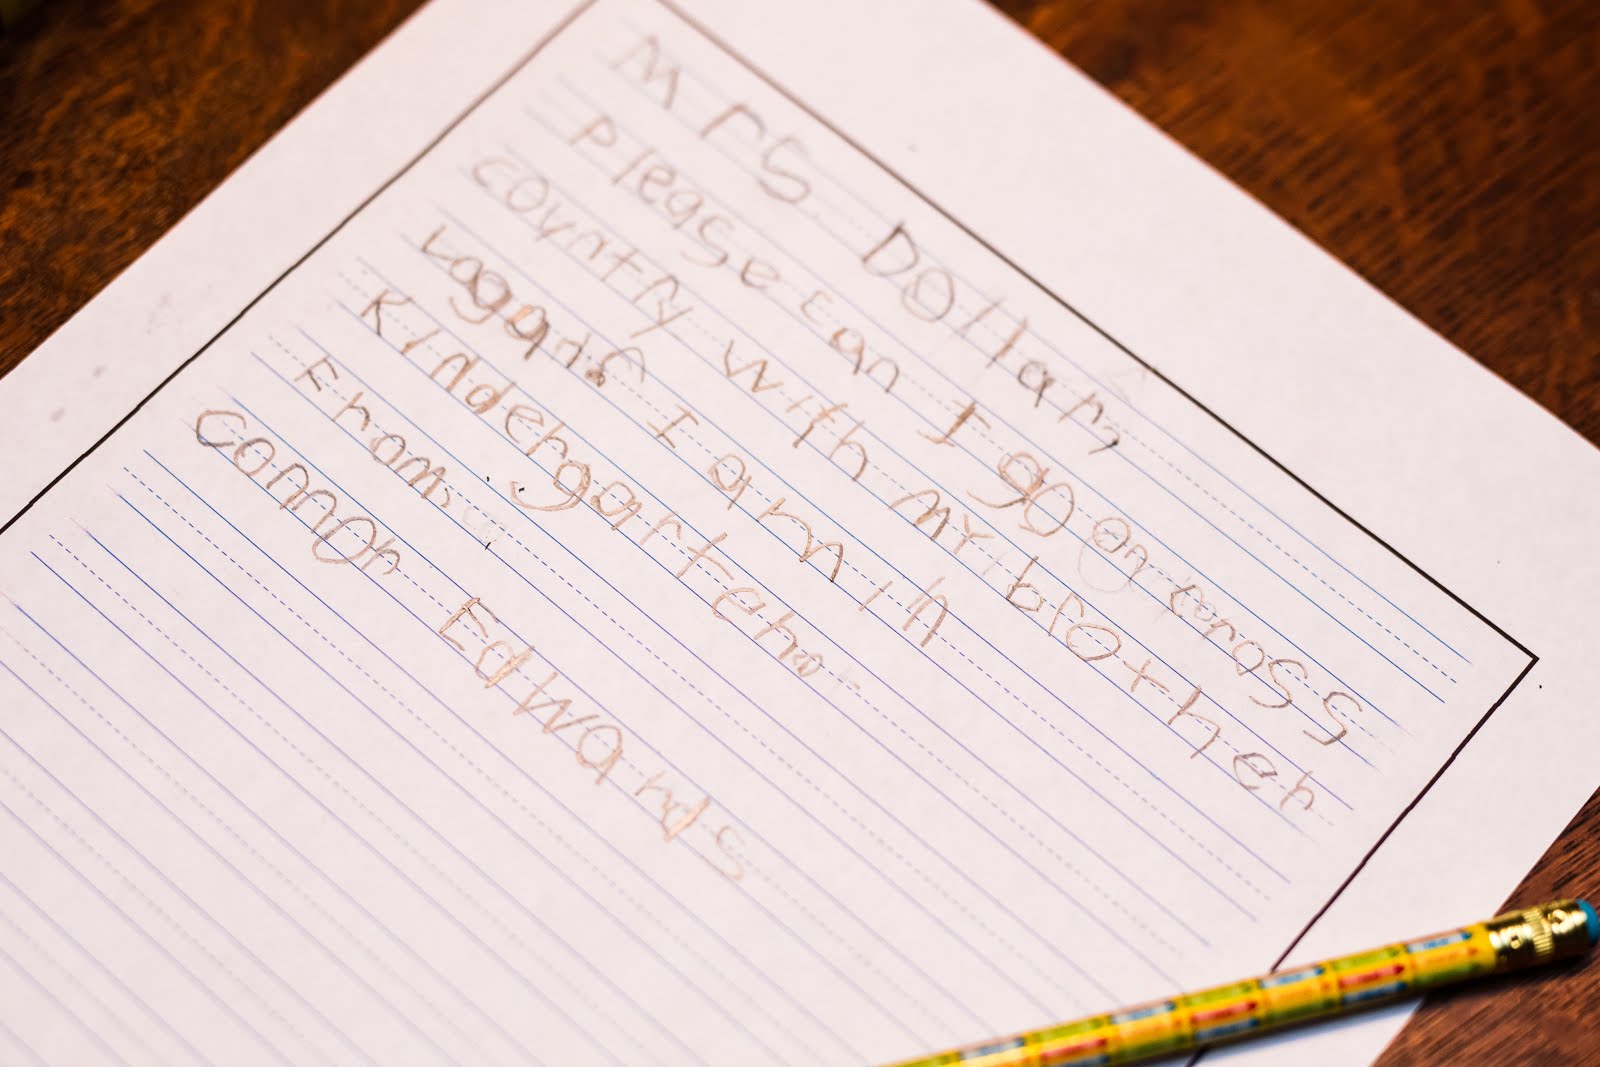 Mrs Dollar,
Please can I go on cross
country with my brother
Logan? I am in
Kindergarten.
From,
Connor Edwards